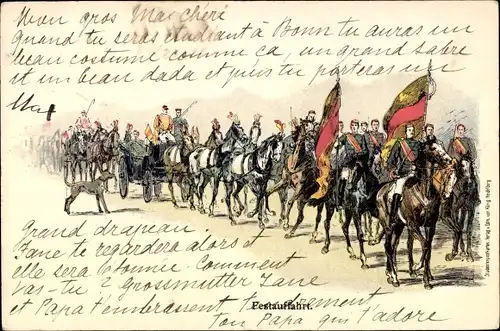 Mon gros Max chéri
Quand tu seras étudiant à Bonn tu auras un
beau costume comme ça, un grand sabre
et un beau dada et puis tu porteras un
Grand drapeau.
Jane te regardera alors et
elle sera étonnée. Comment
vas-tu? Grossmutter Jane
et Papa t'embrassent tendrement
Ton Papa qui t'adore
Festauffahrt.